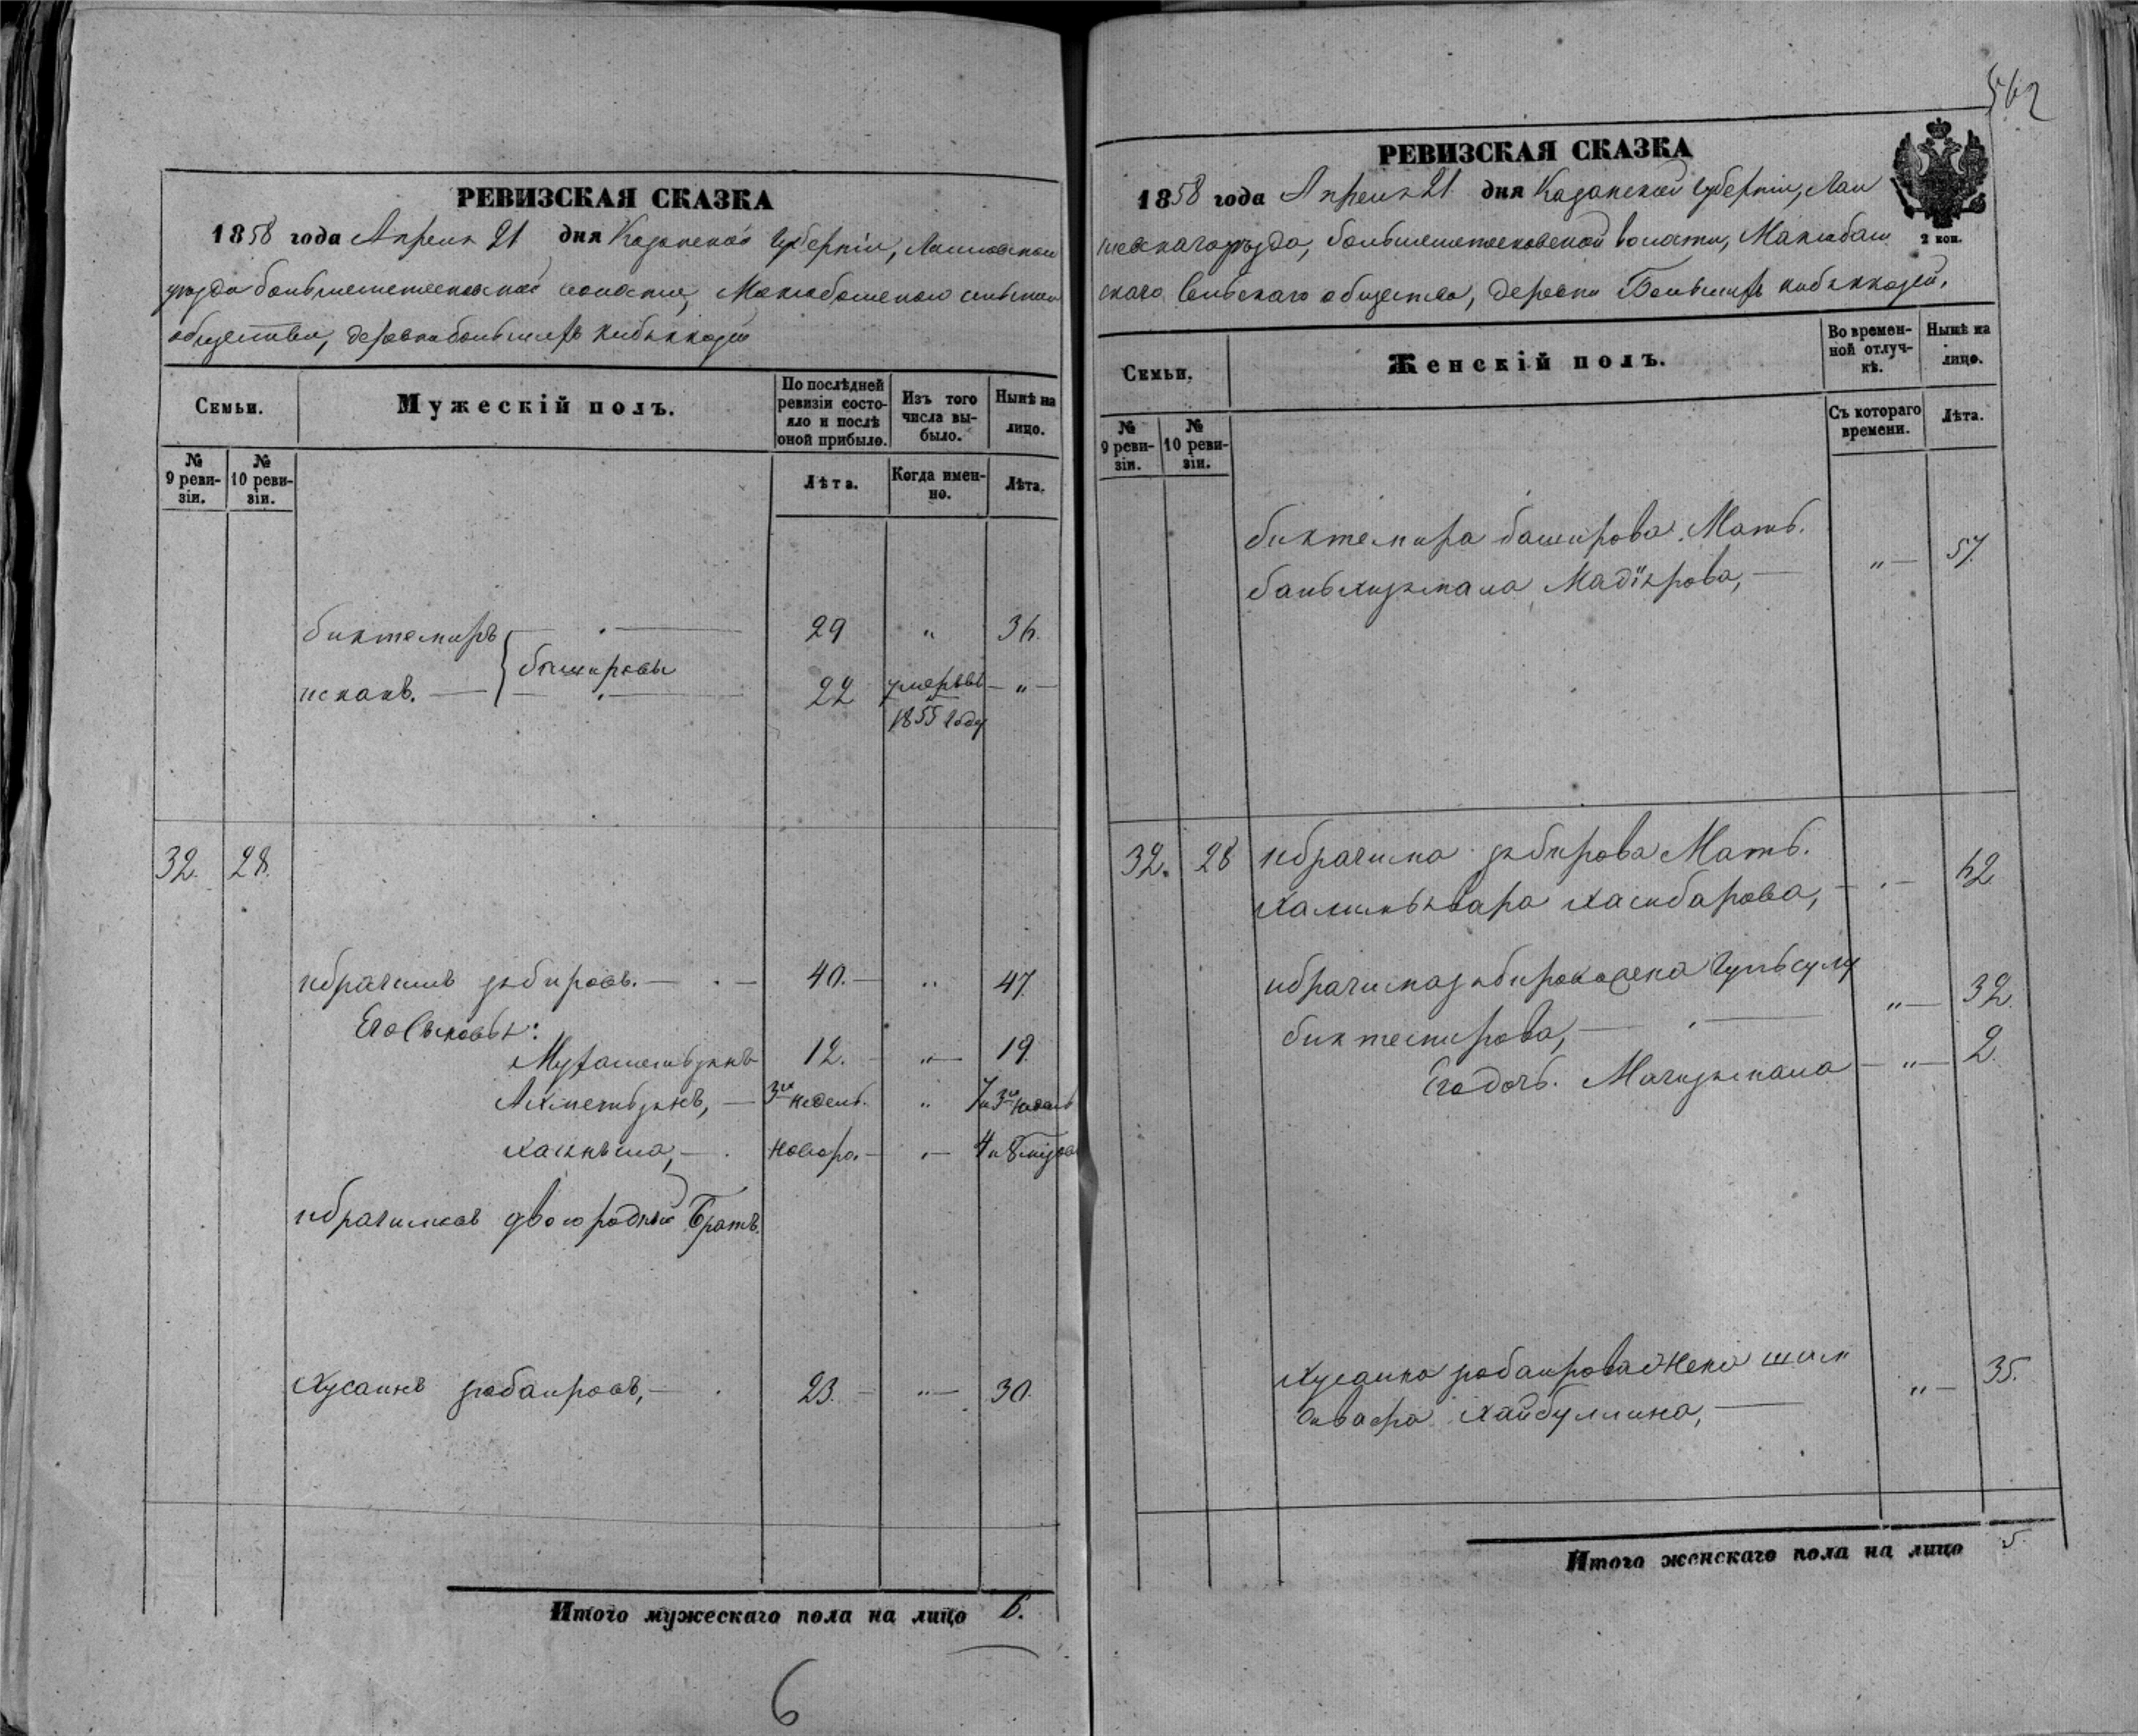 РЕВИЗСКАЯ СКАЗКА
1858 года Апреля 21 дня Казанской Губерніи, Лаишевскаго
уезда большеметесковской волости, Маклабашскаго сельскаго
общества, деревни большихъ кибякъкозей
Семьи.
Мужескій полъ.
По послѣдней ревизіи состояло и послѣ оной прибыло.
Изъ того числа выбыло.
Нынѣ на лицо.
№ 9 ревизіи.
№ 10 ревизіи.
Лѣта.
Когда именно.
Лѣта.
биктемиръ — 29 „ 36.
башировы
искакъ. — 22 умеръ въ — „ —
1855 году
32. 28.
ибрагимъ забировъ. — 40. — „ 47.
Его Сыновья:
Мухаметьзянъ 12. — „ — 19.
Ахметьзянъ, — 3хъ недель. „ 7 и 3хъ недель
новоро. — „ — 4 и 8
ибрагимовъ двоюродный Братъ.
Хусаинъ забаировъ, — 23. — „ — 30.
Итого мужескаго пола на лицо 6.
6
562
РЕВИЗСКАЯ СКАЗКА
1858 года Апреля 21 дня Казанской Губерніи, Лаи
шевскаго уезда, большеметесковской волости, Маклабаш
скаго Сельскаго общества, деревни Большихъ кибякъкозей.
2 коп.
Семьи.
Женскій полъ.
Во временной отлучкѣ.
Нынѣ на лицо.
№ 9 ревизіи.
№ 10 ревизіи.
Съ котораго времени.
Лѣта.
биктемира баширова Мать.
Мадіярова, — „ — 57.
32. 28 ибрагима забирова Мать.
Хасибарова, — . — 62
ибрагима забирова жена
биктемирова, — „ — 32.
Его дочь. Магизямала — „ — 2.
Хусаина забаирова жена
Хайбуллина, — „ — 35.
Итого женскаго пола на лицо 5.